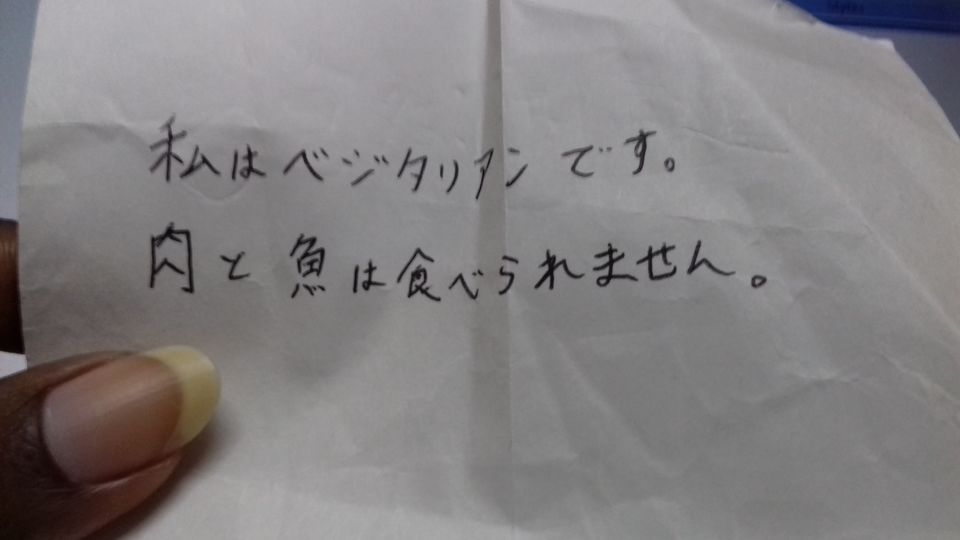 私はベジタリアンです。
肉と魚は食べられません。